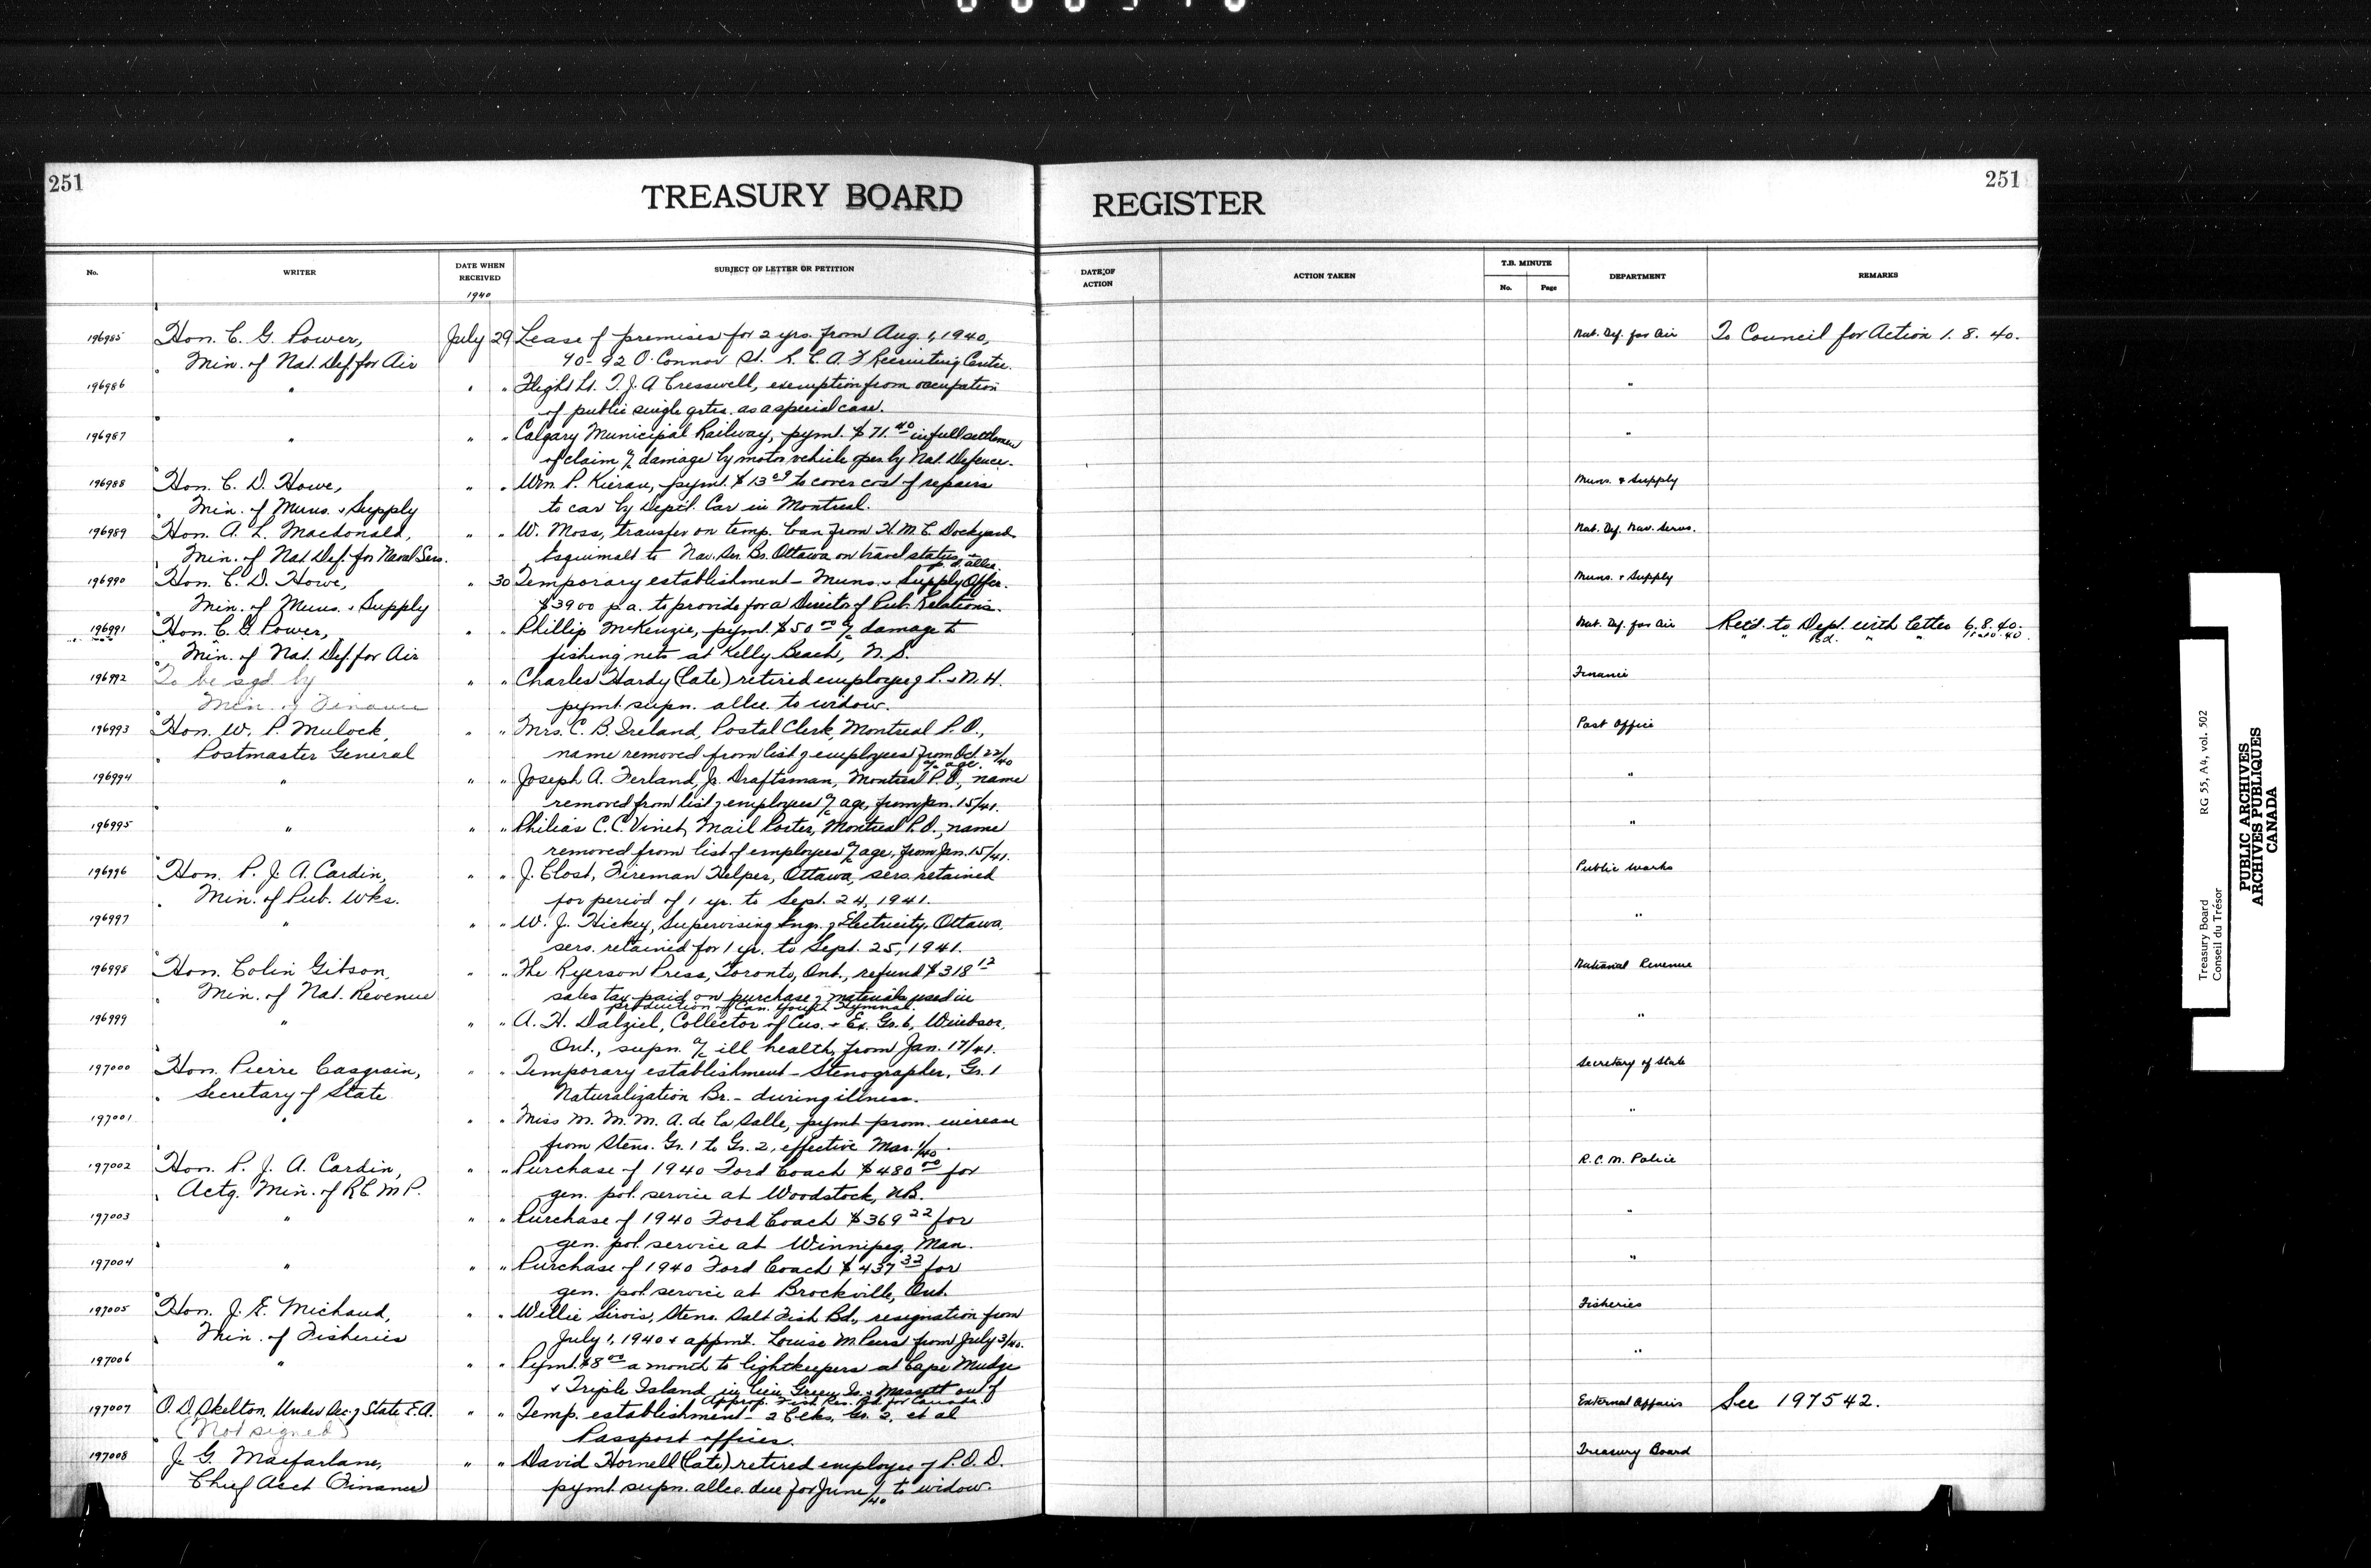 251
TREASURY BOARD REGISTER
251
No. WRITER DATE WHEN RECEIVED SUBJECT OF LETTER OR PETITION DATE OF ACTION ACTION TAKEN T.B. MINUTE No. Page DEPARTMENT REMARKS
1940
196985 Hon. C. G. Power, July 29 Lease of premises for 2 yrs. from Aug. 1, 1940, Nat. Def. for Air To Council for Action 1. 8. 40.
Min. of Nat. Def. for Air 90-92 O'Connor St. R. C. A. F Recruiting Centre.
196986 " " " Flight Lt. T. J. A. Cresswell, exemption from occupation "
of public single qrtrs. as a special case.
196987 " " " Calgary Municipal Railway, pymt. $71.40 in full settlemen "
of claim a/c damage by motor vehicle oper. by Nat. Defence.
196988 Hon. C. D. Howe, " " Wm. P. Kieran, pymt. $13 to cover cost of repairs Muns. & Supply
Min. of Muns. & Supply to car by Deptl. Car in Montreal.
196989 Hon. A. L. Macdonald, " " W. Moss, transfer on temp. loan from H. M. C. Dockyard Nat. Def. Nav. Servs.
Min. of Nat. Def. for Naval Sers. Esquimalt to Nav. Ser. Br. Ottawa on travel status, allce.
196990 Hon. C. D. Howe, " 30 Temporary establishment - Muns. & Supply Offcr. Muns. & Supply
Min. of Muns. & Supply $3900 p.a. to provide for a Director of Pub. Relations.
196991 Hon. C. G. Power, " " Phillip McKenzie, pymt. $50 00 a/c damage to Nat. Def. for Air Ret'd. to Dept. with letter 6. 8. 40.
" " Bd. " " 11.10.40.
Min. of Nat. Def. for Air fishing nets at Kelly Beach, N. S.
196992 To be sgd by " " Charles Hardy (late) retired employee of P. & N. H. Finance
Min. of Finance pymt. supn. allce. to widow.
196993 Hon. W. P. Mulock, " " Mrs. C. B. Ireland, Postal Clerk, Montreal P. O., Post Office
Postmaster General name removed from list of employees from Oct. 22/40
a/c age.
196994 " " " Joseph A. Ferland, Jr. Draftsman, Montreal P. O., name "
removed from list of employees a/c age, from Jan. 15/41.
196995 " " " Philias C. C. Vinet, Mail Porter, Montreal P. O., name "
removed from list of employees a/c age, from Jan. 15/41.
196996 Hon. P. J. A. Cardin, " " J. Clost, Fireman Helper, Ottawa, sers. retained Public Works
Min. of Pub. Wks. for period of 1 yr. to Sept. 24, 1941.
196997 " " " W. J. Hickey, Supervising Engr. of Electricity, Ottawa, "
sers. retained for 1 yr. to Sept. 25, 1941.
196998 Hon. Colin Gibson, " " The Ryerson Press, Toronto, Ont., refund $318 12 National Revenue
Min. of Nat. Revenue sales tax paid on purchase of materials used in
production of Can. Youth Hymnal.
196999 " " " A. H. Dalziel, Collector of Cus. & Ex. Gr. 6, Windsor, "
Ont., supn. a/c ill health, from Jan. 17/41.
197000 Hon. Pierre Casgrain, " " Temporary establishment - Stenographer, Gr. 1 Secretary of State
Secretary of State Naturalization Br. - during illness.
197001 " " " Miss M. M. M. A. de La Salle, pymt prom. increase "
from Steno. Gr. 1 to Gr. 2, effective Mar. 1/40.
197002 Hon. P. J. A. Cardin, " " Purchase of 1940 Ford Coach $480 00 for R. C. M. Police
Actg. Min. of R C M P. gen. pol. service at Woodstock, N.B.
197003 " " " Purchase of 1940 Ford Coach $369 22 for "
gen. pol. service at Winnipeg, Man.
197004 " " " Purchase of 1940 Ford Coach $437 32 for "
gen. pol. service at Brockville, Ont.
197005 Hon. J. E. Michaud, " " Willie Sirois, Steno. Salt Fish Bd., resignation from Fisheries
Min. of Fisheries July 1, 1940 & appmt. Louise M. from July 3/40.
197006 " " " Pymt. $8 00 a month to lightkeepers at Cape Mudge "
& Triple Island in lieu Green Is. & Massett out of
Approp. Fish Res. Bd. for Canada.
197007 O. D. Skelton, Under Sec. of State E. A. " " Temp. establishment - 2 Clks. Gr. 2, et al External Affairs See 197542.
(Not signed) Passport offices.
197008 J. G. Macfarlane, " " David Hornell (late) retired employee of P. O. D. Treasury Board
Chief Acct (Finance) pymt. supn. allce. due for June/40 to widow.
Treasury Board RG 55, A4, vol. 502
Conseil du Trésor
PUBLIC ARCHIVES
ARCHIVES PUBLIQUES
CANADA